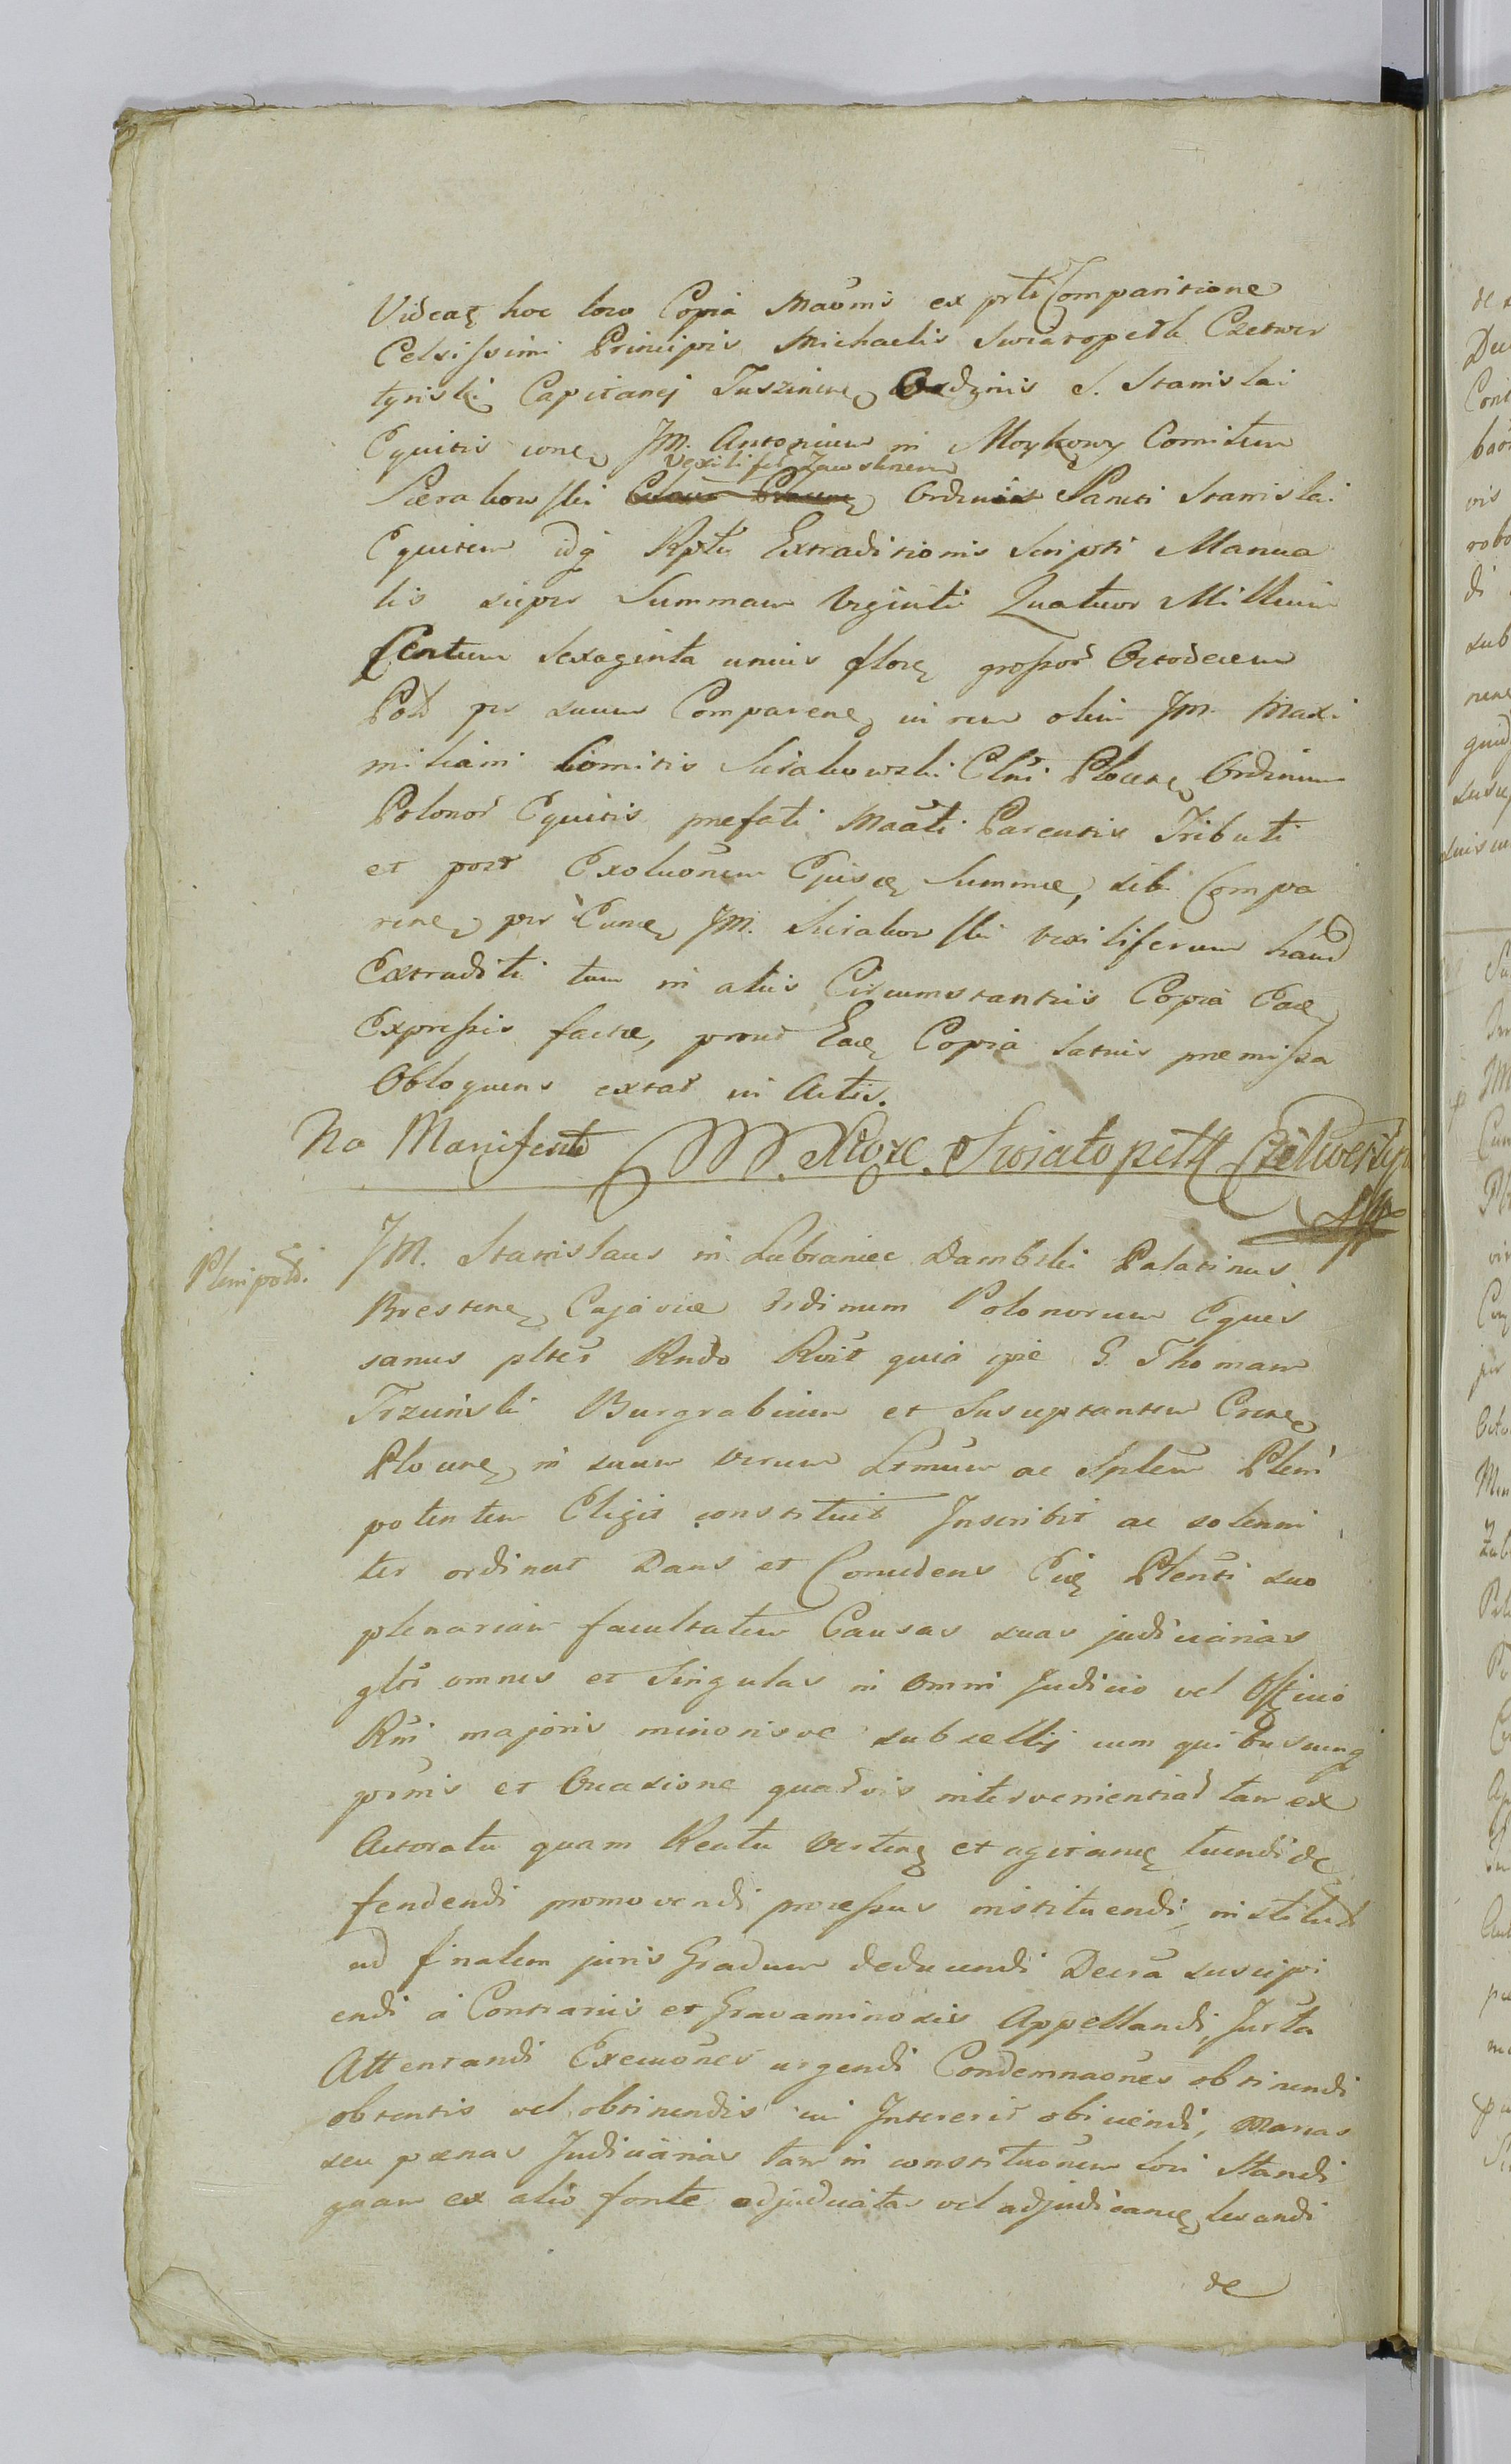 Videat hoc loco Copia Maōnis ex prti Comparitione
Celsissimi Principis Michaelis Swiatopełk Czetwer
tyński Capitanej Tuszinens Ordynis S. Stanislai
Equitis conc JM. Antonium in Moykowy Comitem
Vexilife Zawskrnem
Sierakowski Ordinis Sancti Stanislai
Equitem idq Rptu Extraditionis Scripti Manua
lis super Summam Viginti Quatuor Millium
Centum Sexaginta unius flor grossor Octodecim
Pol pr suum Comparene in rem olim JM. Maxi
miliani Comitis Sierakowski Clni Plocen Ordinum
Polonor Equitis prefati Maāti Parentis Tributi
et post Exoluōnem Ejusd Summæ, sibi Compa
rene pr Eund JM. Sierakowski vexiliferum haud
Extraditi tum in aliis Circumstantiis Copia Ead
Expressis factæ, prout Ead Copia latius præmissa
Obloquens extat in Actis.
Na Manifest M. Xiąże Swiatopełk Czetwertyń
Plenipoten.
JM. Stanislaus in Lubraniec Dambski Palatinus
Brestens Cujaviæ Ordinum Polonorum Eques
sanus plter Rndo Rvit quia ipe G. Thomam
Trzcinski Burgrabium et Susceptantem Crene
Plocens in suum verum Ltmum ac Spleum Pleni
potentem Eligit constituit Inscribit ac solenni
ter ordinat Dans et Concedens Eid Plenti suo
plenariam facultatem Causas suas judiciarias
gltr omnes et Singulas in omni Judicio vel Officio
Rni majoris minorisve subsellij cum quibusvunq
prnis et Occasione quarvis intervenientiad tam ex
Actoratu quam Reatu verten et agitand tuendi de
fendendi promovendi processus instituendi, institut
ad finalem juris Gradum deducendi Decra suscipi
endi à Contrariis et Gravaminosis Appellandi Jurta
Attentandi Execuōnes urgendi Condemnaōnes obtinendi
obtentis vel obtinendis cui Intererit obiciendi, Marcas
seu pænas Judiciarias tam in constituōnem loci Standi
quam ex alio fonte adjudicatas vel adjudicand levandi
de